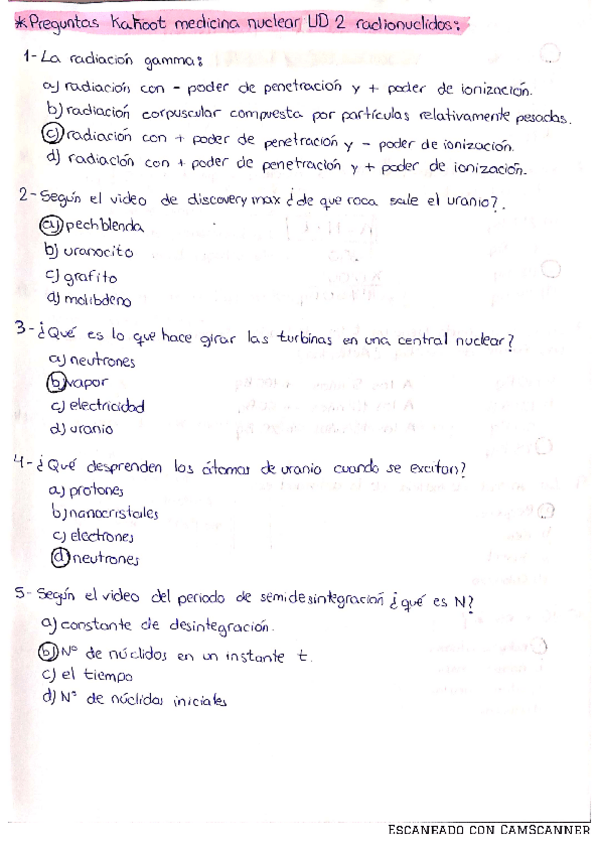 *Preguntas Kahoot medicina nuclear UD 2 radionuclidos:
1- La radiación gamma:
a) radiación con - poder de penetración y + poder de ionización.
b) radiación corpuscular compuesta por partículas relativamente pesadas.
c) radiación con + poder de penetración y - poder de ionización.
d) radiación con + poder de penetración y + poder de ionización.
2- Según el video de discovery max ¿de que roca sale el uranio?.
a) pechblenda
b) uranocito
c) grafito
d) molibdeno
3- ¿Qué es lo que hace girar las turbinas en una central nuclear?
a) neutrones
b) vapor
c) electricidad
d) uranio
4- ¿Qué desprenden los átomos de uranio cuando se excitan?
a) protones
b) nanocristales
c) electrones
d) neutrones
5- Según el video del periodo de semidesintegración ¿qué es N?
a) constante de desintegración.
b) Nº de núclidos en un instante t.
c) el tiempo
d) Nº de núclidos iniciales
ESCANEADO CON CAMSCANNER